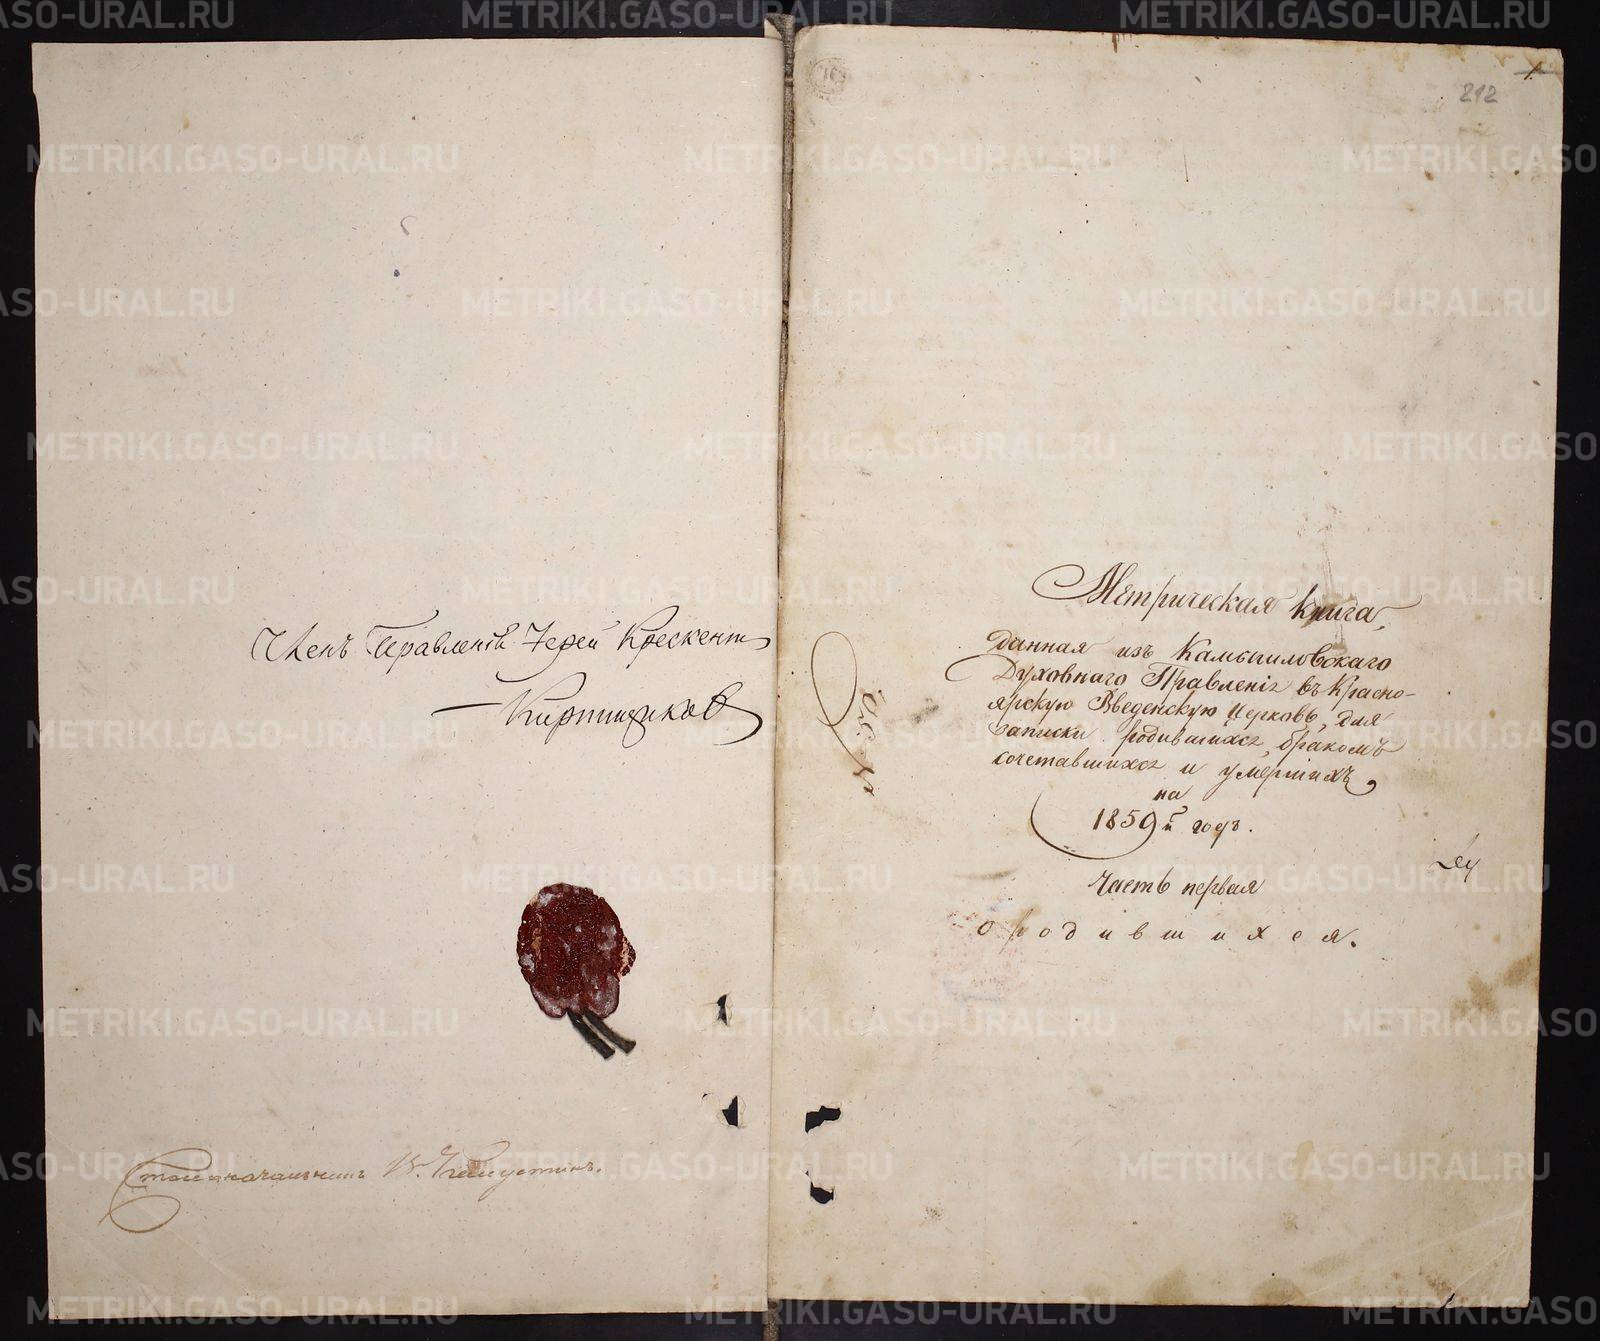 Членъ Правленія Іерей Крескентъ
Кирпищиковъ
Столоначальникъ
1.
212
Метрическая книга,
данная изъ Камышловскаго
Духовнаго Правленія въ Красно-
ярскую Введенскую церковь, для
записки родившихся, бракомъ
сочетавшихся и умершихъ,
на
1859й годъ.
Часть первая
о родившихся.
METRIKI.GASO-URAL.RU